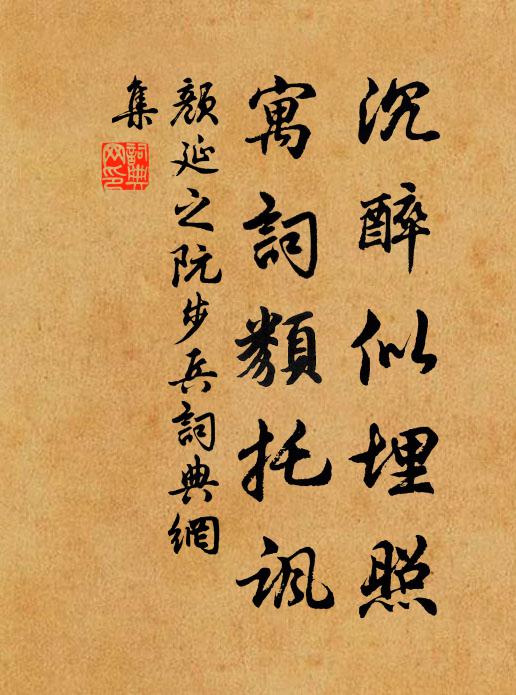 沉醉似埋照
寓詞類托諷
顏延之阮步兵詞典網
集
詞典
网印